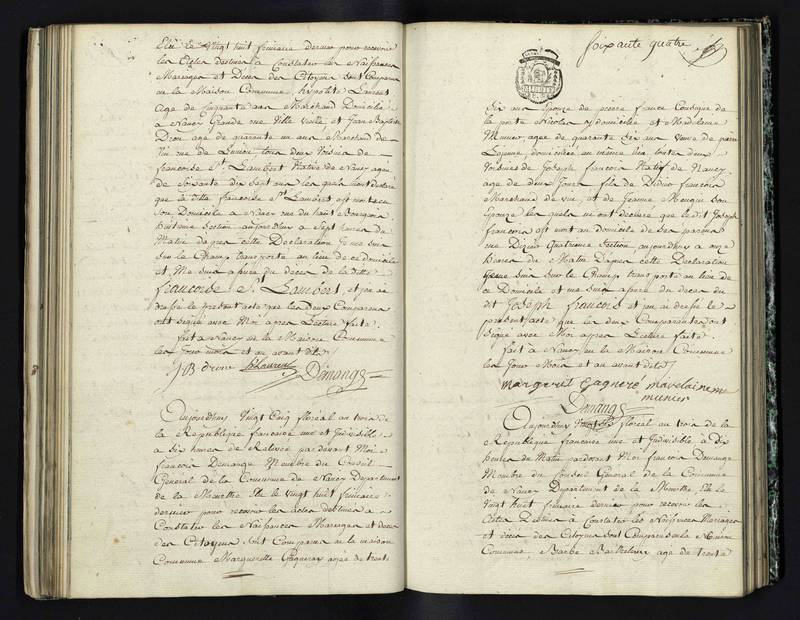 Elu le vingt huit frimaire dernier pour recevoir
les Actes destinés a Constater les Naissances
Mariages et Décès des Citoyens sont Comparus
en la Maison Commune, hypolite Laurent
agé de Cinquante ans Marchand Domicilié
a Nancy Grande rue Ville vieille, et Jean Baptiste
agé de quarante un ans Marchand de
Vin rue de tous deux Voisins de
francoise St. Lambert Native de Nancy agée
de Soixante dix Sept ans les quels m'ont declaré
que la ditte francoise St. Lambert est morte en
son Domicile a Nancy rue du haut Bourgeois
huitieme Section aujourdhuy a Sept heures du
Matin dapres cette Declaration Je me suis
sur le Champ transporté au lieu de ce domicile
et Me suis assuré du decès de la ditte
francoise St. Lambert, et j'en ai
dressé le present acte que les Deux Comparans
ont signé avec Moi apres Lecture faite.
fait a Nancy en la Maison Commune
les Jour mois et an avant dits
Demange
Aujourdhuy Vingt Cinq floréal an trois de
la République francaise une et Indivisible
a Six heures de Relevée pardevant Moi
francois Demange Membre du Conseil
Général de la Commune de Nancy Département
de la Meurthe Elu le vingt huit frimaire
dernier pour recevoir les actes destinés a
Constater les Naissances Mariages et deces
des Citoyens sont Comparus en la maison
Commune Marguerite agée de trente
soixante quatre
Six ans Epouse de pierre
la porte Nicolas y domiciliée et Madelaine
Munier agée de quarante Six ans Veuve de
domiciliée au même lieu toutes deux
Voisines de Joseph francois Natif de Nancy
agé de deux Jours fils de Didier francois
Marchand de vin, et de Jeanne son
Epouse les quels m'ont declaré que le dit Joseph
francois est mort au domicile de ses parens
rue Quatrieme Section aujourdhuy a onze
heures du Matin Dapres cette Declaration
Je me suis sur le Champ transporté au lieu de
ce Domicile et me suis assuré du deces du
dit Joseph francois et j'en ai dressé le
present acte que les deux Comparantes ont
Signé avec Moi apres Lecture faite.
fait a Nancy en la Maison Commune
les Jour Mois et an avant dits
margerit gagnere madelainem
munier
Demange
Aujourdhuy floréal an trois de la
République francaise une et Indivisible a Dix
heures du Matin pardevant Moi francois Demange
Membre du Conseil Général de la Commune
de Nancy Département de la Meurthe, Elu le
Vingt huit frimaire dernier pour recevoir les
Actes Destinés a Constater les Naissances Mariages
et deces des Citoyens sont Comparus en la Maison
Commune, Barbe agée de trente